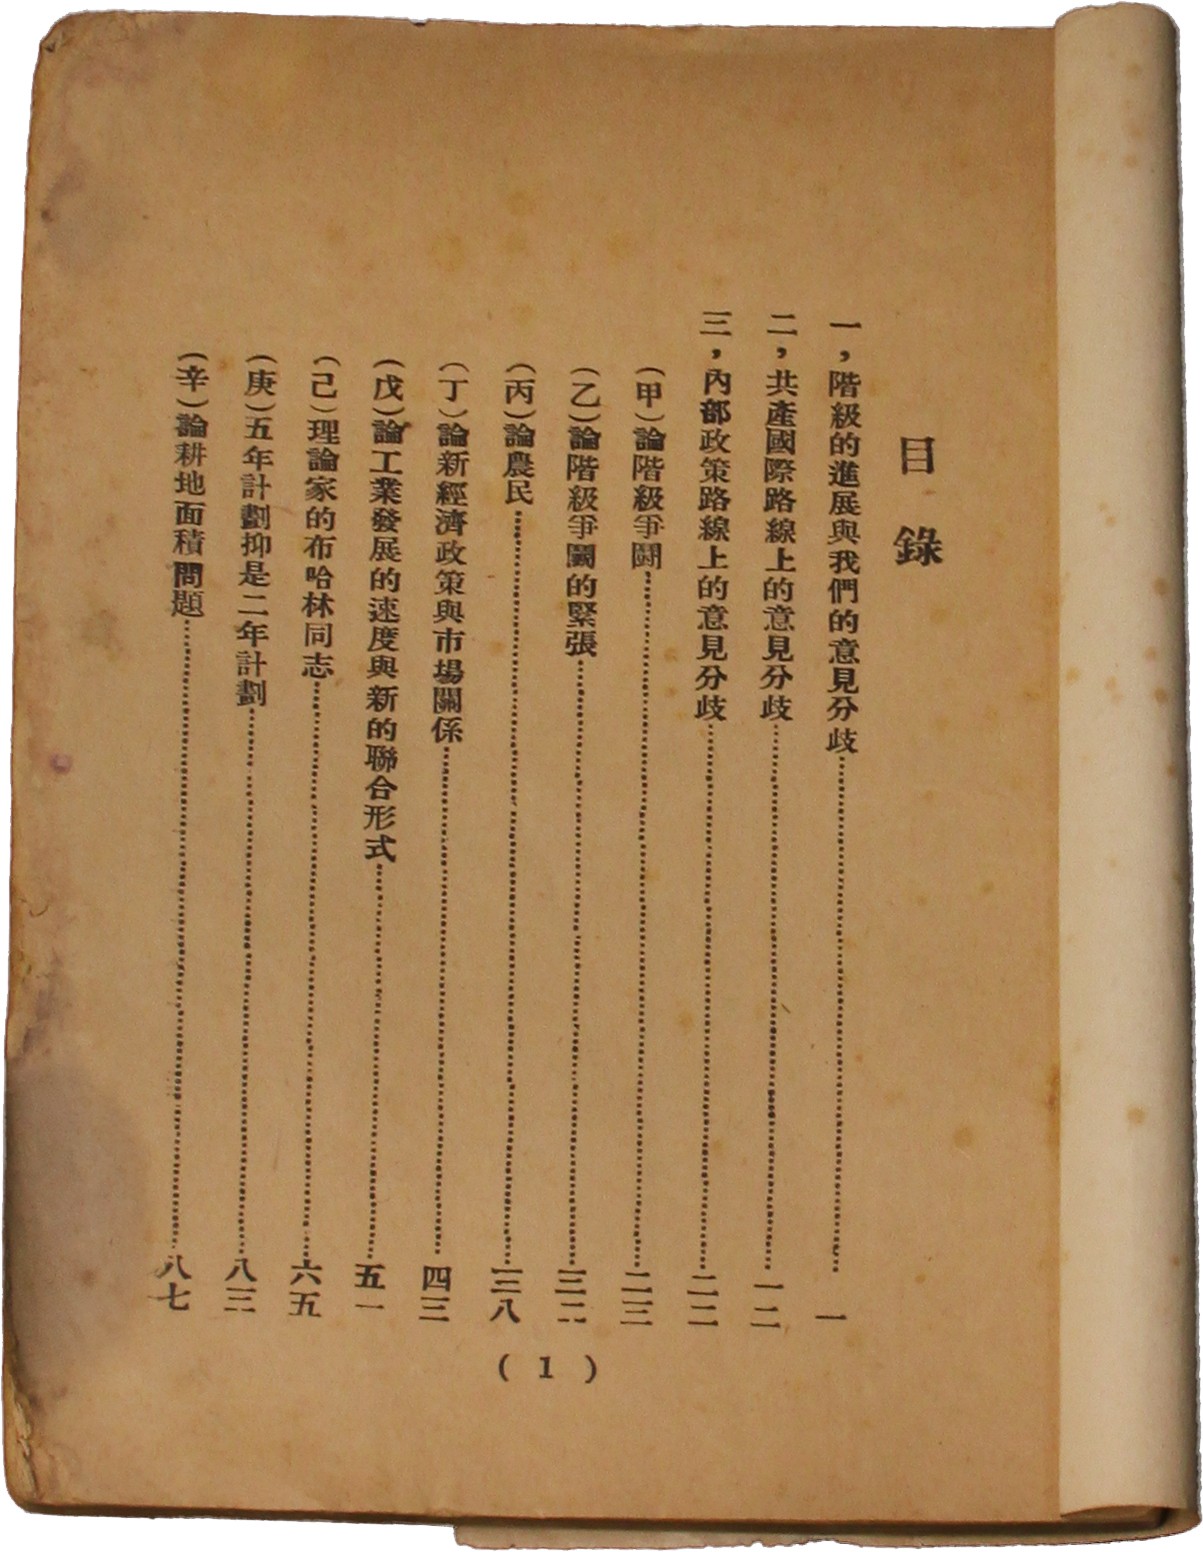 目錄
一，階級的進展與我們的意見分歧……一
二，共產國際路線上的意見分歧……一二
三，內部政策路線上的意見分歧……二二
（甲）論階級爭鬪……二三
（乙）論階級爭鬪的緊張……三二
（丙）論農民……三八
（丁）論新經濟政策與市場關係……四三
（戊）論工業發展的速度與新的聯合形式……五一
（己）理論家的布哈林同志……六五
（庚）五年計劃抑是二年計劃……八三
（辛）論耕地面積問題……八七
(1)